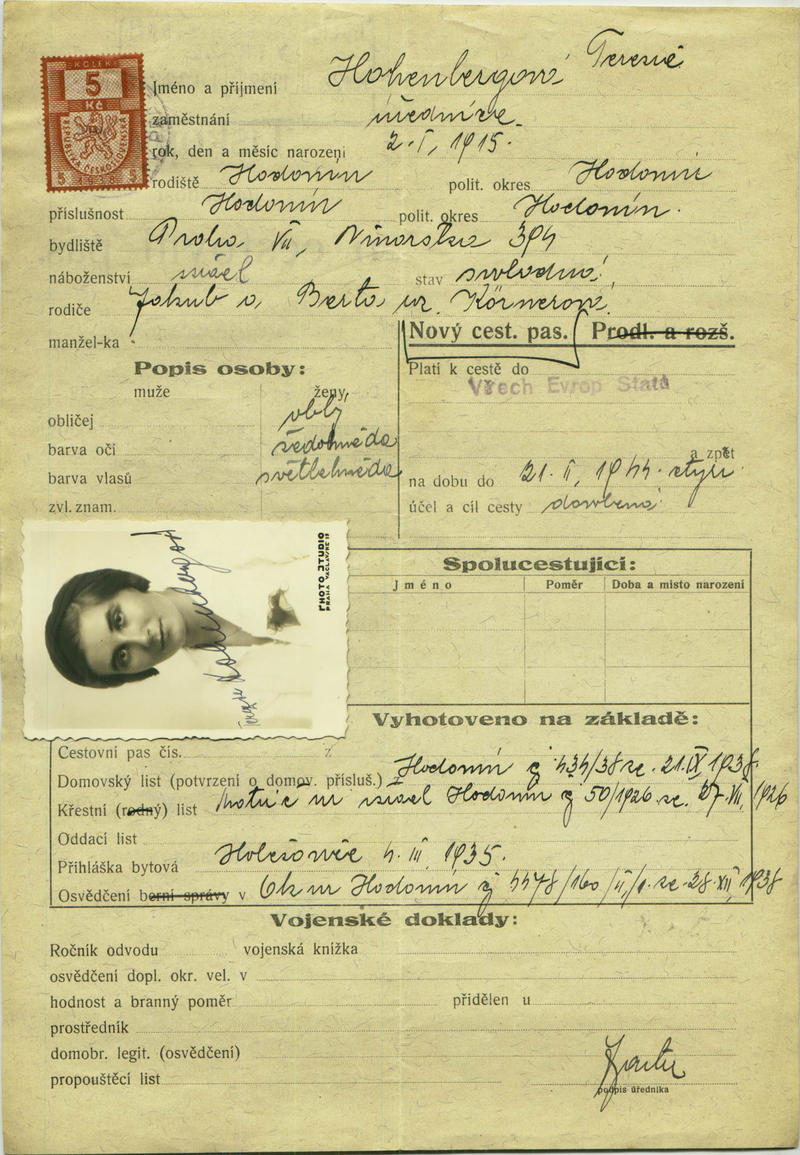 KOLEK
5
Kč
REPUBLIKA ČESKOSLOVENSKÁ
5 1938 5
Jméno a příjmení Hohenbergová Teresie
zaměstnání úřednice.
rok, den a měsíc narození 2. I, 1915.
rodiště Hodonín polit. okres Hodonín
příslušnost Hodonín polit. okres Hodonín.
bydliště Praha VII,
náboženství israel stav svobodná
rodiče Jakub a Berta roz. Körnerová
manžel-ka
Nový cest. pas. Prodl. a rozš.
Popis osoby: Platí k cestě do
muže ženy Všech Evrop Států
obličej oblý
barva očí šedohnědá a zpět
barva vlasů světlehnědá na dobu do 21. II, 1944. čtyři
zvl. znam. účel a cíl cesty dovolená
PHOTO STUDIO
PRAHA VÁCLAVSKÉ
Spolucestující:
Jméno Poměr Doba a místo narození
Vyhotoveno na základě:
Cestovní pas čís. z
Domovský list (potvrzení o domov. přísluš.) z Hodonín 21. IX, 1938.
Křestní (rodný) list Matrice israel Hodonín 50/1926 27. VII, 1926
Oddací list
Přihláška bytová Holešovice 4. III, 1935.
Osvědčení berní správy v Hodonín 28. XII, 1938
Vojenské doklady:
Ročník odvodu vojenská knížka
osvědčení dopl. okr. vel. v
hodnost a branný poměr přidělen u
prostředník
domobr. legit. (osvědčení)
propouštěcí list
podpis úředníka